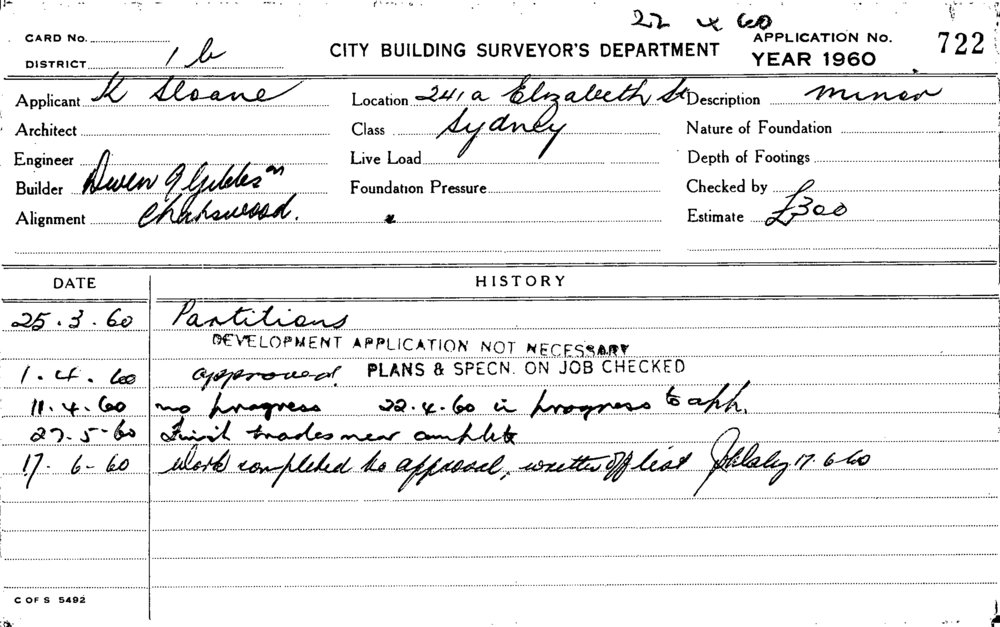 22 4 60
CARD No.
DISTRICT 1 b
CITY BUILDING SURVEYOR'S DEPARTMENT
APPLICATION No. 722
YEAR 1960
Applicant K Sloane
Location 241a Elizabeth St
Description minor
Architect
Class Sydney
Nature of Foundation
Engineer
Live Load
Depth of Footings
Builder Owen J Gibbson
Foundation Pressure
Checked by
Alignment Chatswood.
Estimate £300
DATE HISTORY
25.3.60 Partitions
DEVELOPMENT APPLICATION NOT NECESSARY
1.4.60 approved. PLANS & SPECN. ON JOB CHECKED
11.4.60 no progress 22.4.60 in progress to aph.
27-5-60 Finish trades near complete
17.6-60 Work completed to approval, written off list 17.6.60
C OF S 5492